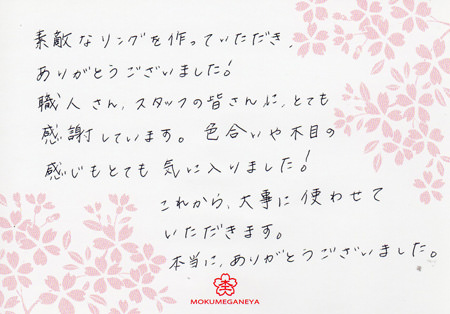 素敵なリングを作っていただき、
ありがとうございました!
職人さん、スタッフの皆さんに、とても
感謝しています。色合いや木目の
感じもとても気に入りました!
これから、大事に使わせて
いただきます。
本当に、ありがとうございました。
MOKUMEGANEYA